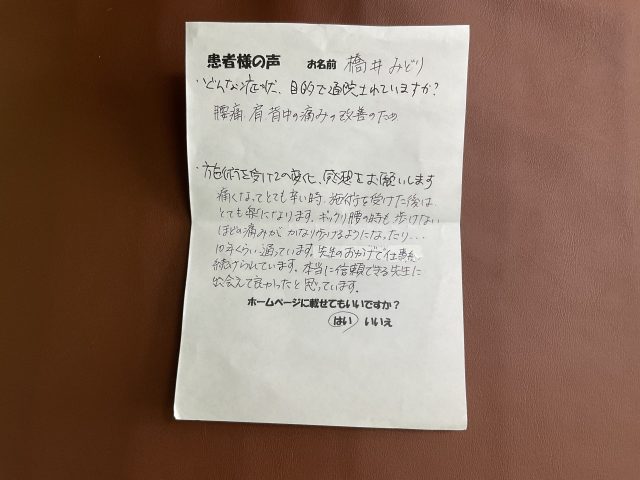 患者様の声 お名前 橋井 みどり
・どんな症状、目的で通院されていますか?
腰痛 肩 背中の痛みの改善のため
・施術を受けての変化、感想をお願いします
痛くなってとても辛い時、施術を受けた後は、
とても楽になります。ギックリ腰の時も歩けない
ほどの痛みが、かなり歩けるようになったり…
10年くらい通っています。先生のおかげで仕事を
続けられています。本当に信頼できる先生に
出会えて良かったと思っています。
ホームページに載せてもいいですか?
はい いいえ